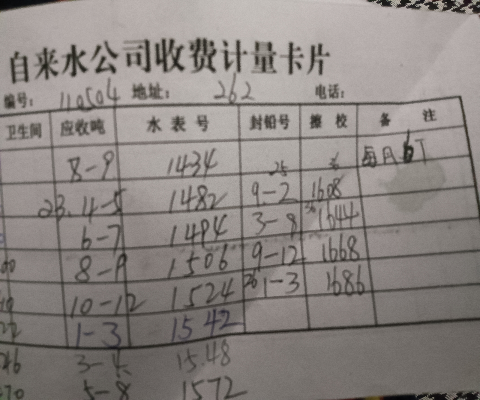 自来水公司收费计量卡片
编号: 110504 地址: 262 电话:
卫生间 应收吨 水表号 封铅号 擦校 备注
8-9 1434 25 每月6T
23.4-5 1482 9-2 1608
6-7 1494 3-8 1644
8-9 1506 9-12 1668
10-12 1524 26 1-3 1686
1-3 1542
3-4 15.48
5-8 1572